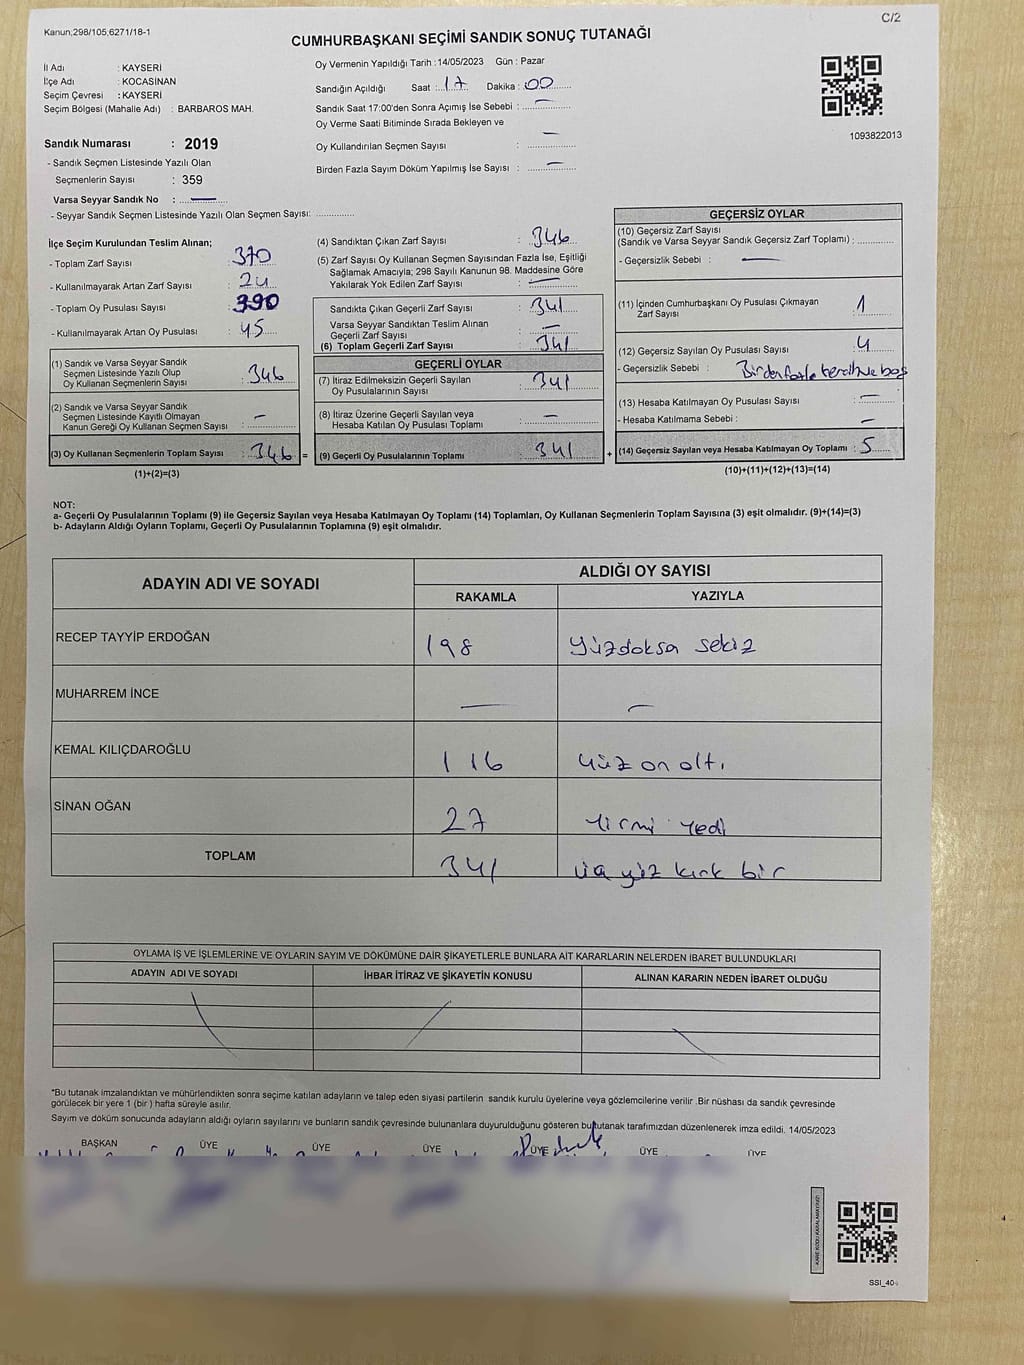 Kanun,298/105,6271/18-1
C/2
CUMHURBAŞKANI SEÇİMİ SANDIK SONUÇ TUTANAĞI
İl Adı : KAYSERİ
İlçe Adı : KOCASİNAN
Seçim Çevresi : KAYSERİ
Seçim Bölgesi (Mahalle Adı) : BARBAROS MAH.
Sandık Numarası : 2019
- Sandık Seçmen Listesinde Yazılı Olan
Seçmenlerin Sayısı : 359
Varsa Seyyar Sandık No : —
- Seyyar Sandık Seçmen Listesinde Yazılı Olan Seçmen Sayısı: ..............
Oy Vermenin Yapıldığı Tarih : 14/05/2023 Gün : Pazar
Sandığın Açıldığı Saat : 17 Dakika : 00
Sandık Saat 17:00'den Sonra Açımış İse Sebebi : —
Oy Verme Saati Bitiminde Sırada Bekleyen ve
Oy Kullandırılan Seçmen Sayısı : —
Birden Fazla Sayım Döküm Yapılmış İse Sayısı : —
1093822013
İlçe Seçim Kurulundan Teslim Alınan;
- Toplam Zarf Sayısı : 370
- Kullanılmayarak Artan Zarf Sayısı : 24
- Toplam Oy Pusulası Sayısı : 390
- Kullanılmayarak Artan Oy Pusulası : 45
(1) Sandık ve Varsa Seyyar Sandık
Seçmen Listesinde Yazılı Olup
Oy Kullanan Seçmenlerin Sayısı : 346
(2) Sandık ve Varsa Seyyar Sandık
Seçmen Listesinde Kayıtlı Olmayan
Kanun Gereği Oy Kullanan Seçmen Sayısı : —
(3) Oy Kullanan Seçmenlerin Toplam Sayısı : 346 =
(1)+(2)=(3)
(4) Sandıktan Çıkan Zarf Sayısı : 346
(5) Zarf Sayısı Oy Kullanan Seçmen Sayısından Fazla İse, Eşitliği
Sağlamak Amacıyla; 298 Sayılı Kanunun 98. Maddesine Göre
Yakılarak Yok Edilen Zarf Sayısı : —
Sandıkta Çıkan Geçerli Zarf Sayısı : 341
Varsa Seyyar Sandıktan Teslim Alınan
Geçerli Zarf Sayısı : —
(6) Toplam Geçerli Zarf Sayısı : 341
GEÇERLİ OYLAR
(7) İtiraz Edilmeksizin Geçerli Sayılan
Oy Pusulalarının Sayısı : 341
(8) İtiraz Üzerine Geçerli Sayılan veya
Hesaba Katılan Oy Pusulası Toplamı : —
(9) Geçerli Oy Pusulalarının Toplamı : 341 +
GEÇERSİZ OYLAR
(10) Geçersiz Zarf Sayısı
(Sandık ve Varsa Seyyar Sandık Geçersiz Zarf Toplamı) : ............
- Geçersizlik Sebebi : —
(11) İçinden Cumhurbaşkanı Oy Pusulası Çıkmayan
Zarf Sayısı : 1
(12) Geçersiz Sayılan Oy Pusulası Sayısı : 4
- Geçersizlik Sebebi : Birden fazla tercih ve boş
(13) Hesaba Katılmayan Oy Pusulası Sayısı : —
- Hesaba Katılmama Sebebi : —
(14) Geçersiz Sayılan veya Hesaba Katılmayan Oy Toplamı : 5
(10)+(11)+(12)+(13)=(14)
NOT:
a- Geçerli Oy Pusulalarının Toplamı (9) ile Geçersiz Sayılan veya Hesaba Katılmayan Oy Toplamı (14) Toplamları, Oy Kullanan Seçmenlerin Toplam Sayısına (3) eşit olmalıdır. (9)+(14)=(3)
b- Adayların Aldığı Oyların Toplamı, Geçerli Oy Pusulalarının Toplamına (9) eşit olmalıdır.
ADAYIN ADI VE SOYADI ALDIĞI OY SAYISI
RAKAMLA YAZIYLA
RECEP TAYYİP ERDOĞAN 198 Yüzdoksa sekiz
MUHARREM İNCE — —
KEMAL KILIÇDAROĞLU 116 Yüz on altı
SİNAN OĞAN 27 Yirmi Yedi
TOPLAM 341 üç yüz kırk bir
OYLAMA İŞ VE İŞLEMLERİNE VE OYLARIN SAYIM VE DÖKÜMÜNE DAİR ŞİKAYETLERLE BUNLARA AİT KARARLARIN NELERDEN İBARET BULUNDUKLARI
ADAYIN ADI VE SOYADI İHBAR İTİRAZ VE ŞİKAYETİN KONUSU ALINAN KARARIN NEDEN İBARET OLDUĞU
*Bu tutanak imzalandıktan ve mühürlendikten sonra seçime katılan adayların ve talep eden siyasi partilerin sandık kurulu üyelerine veya gözlemcilerine verilir .Bir nüshası da sandık çevresinde
görülecek bir yere 1 (bir ) hafta süreyle asılır.
Sayım ve döküm sonucunda adayların aldığı oyların sayılarını ve bunların sandık çevresinde bulunanlara duyurulduğunu gösteren bu tutanak tarafımızdan düzenlenerek imza edildi. 14/05/2023
BAŞKAN ÜYE ÜYE ÜYE ÜYE ÜYE ÜYE
KARE KODU KARALAMAYINIZ!